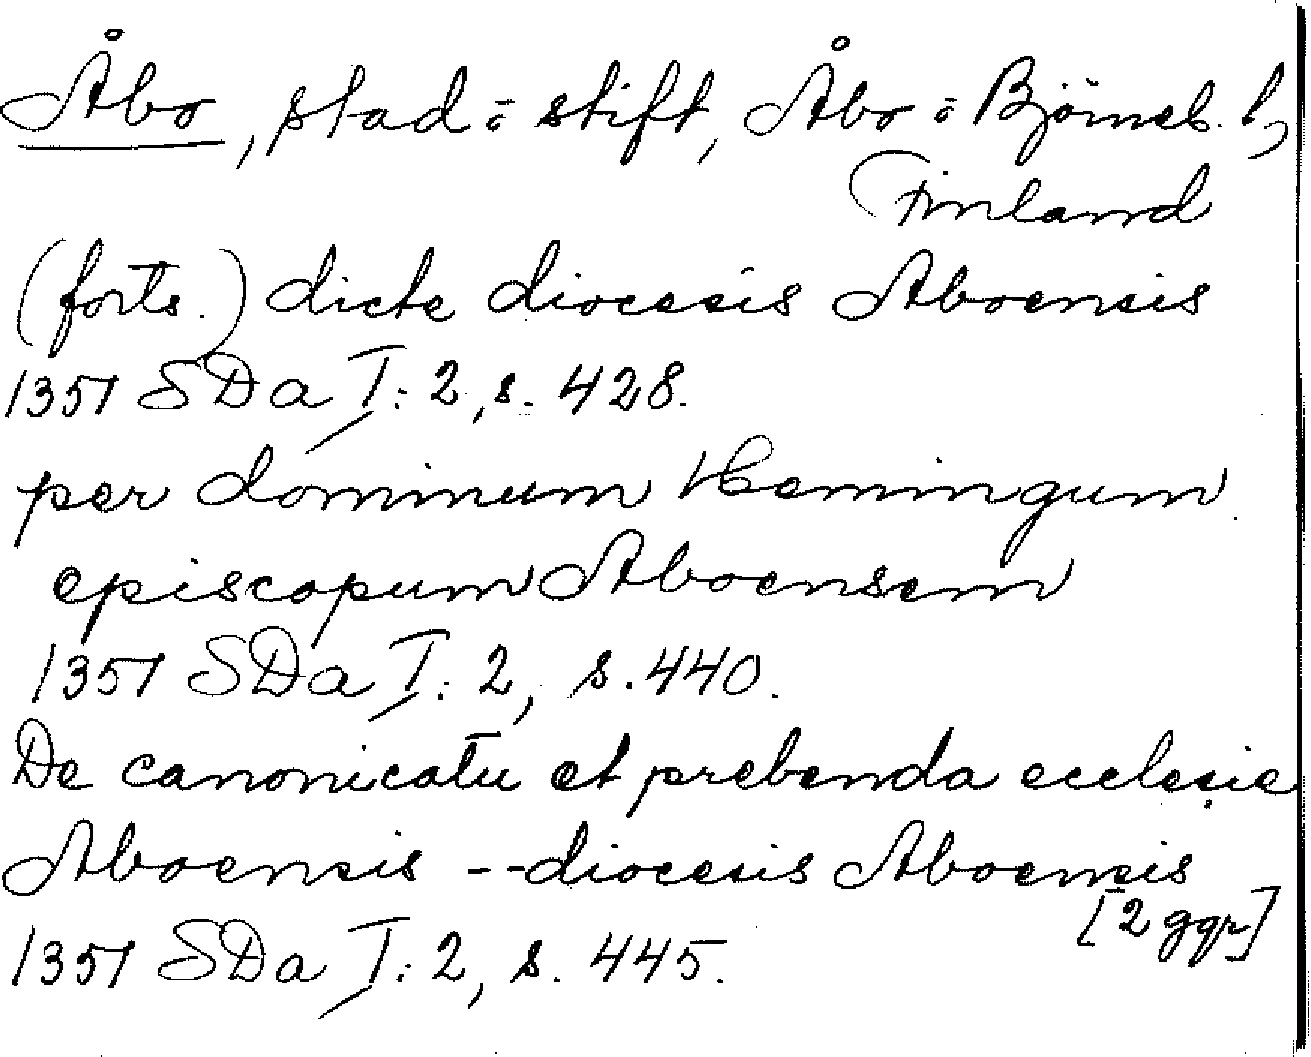 Åbo, stad o stift, Åbo o Björneb. l,
Finland
(forts.) dicte diocesis Aboensis
1351 SDa I: 2, s. 428.
per dominum Hemingum
episcopum Aboensem
1351 SDa I: 2, s. 440.
De canonicatu et prebenda ecclesie
Aboensis -- diocesis Aboensis
[2 ggr]
1351 SDa I: 2, s. 445.